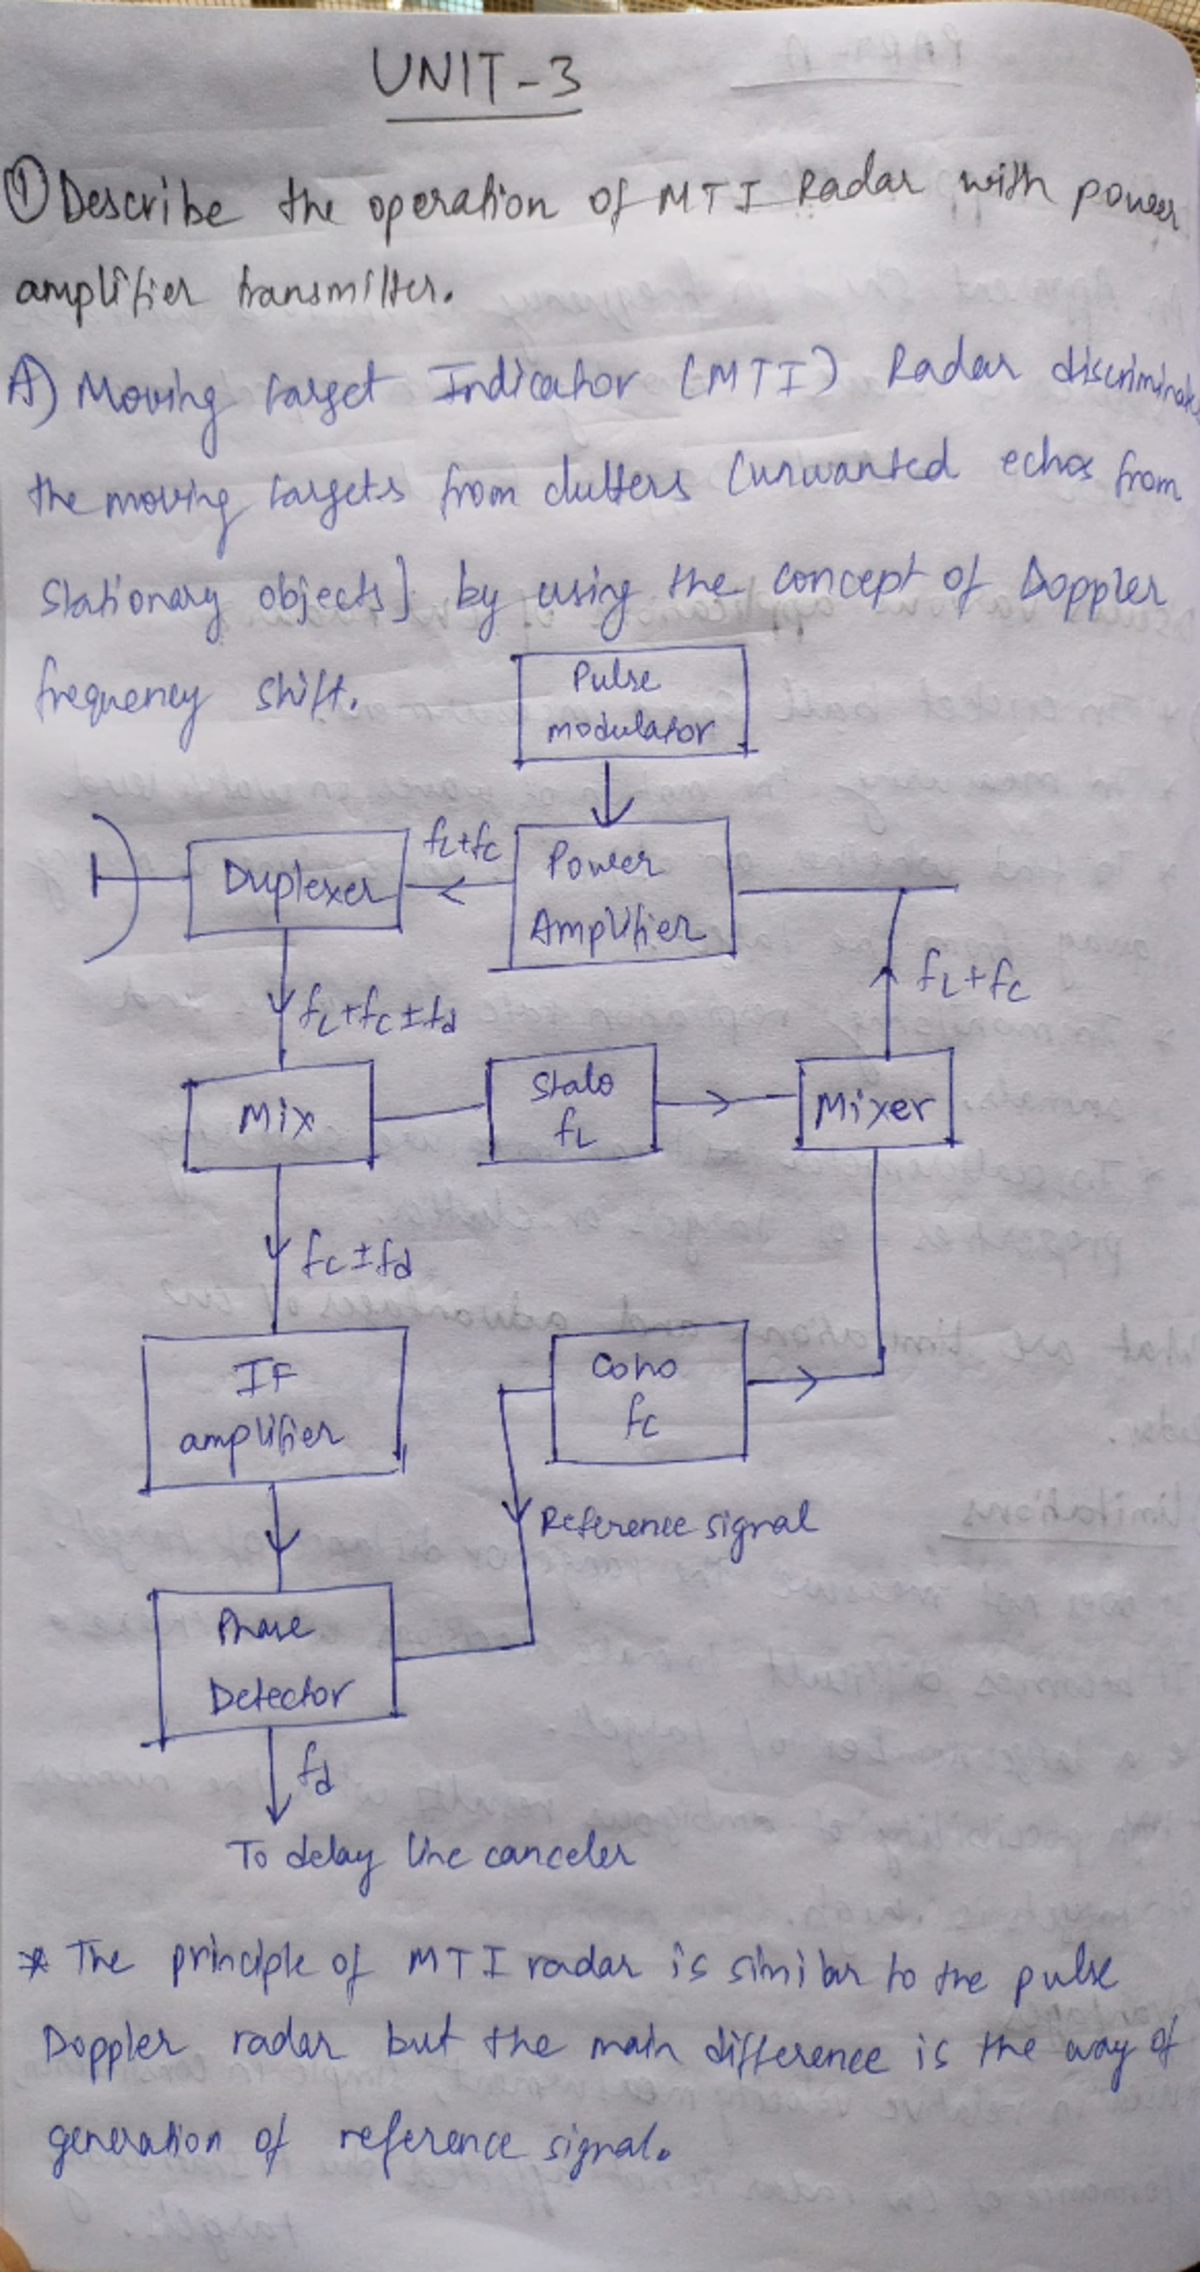 UNIT-3
① Describe the operation of MTI Radar with power
amplifier transmitter.
A) Moving target Indicator (MTI) Radar discriminates
the moving targets from clutters (unwanted echos from
Stationary objects] by using the concept of Doppler
frequency shift.
Pulse
modulator
Duplexer
fL+fC
Power
Amplifier
fL+fC±fd
fL+fC
Mix
Stalo
fL
Mixer
fC±fd
IF
amplifier
Coho
fC
Reference signal
Phase
Detector
fd
To delay line canceler
* The principle of MTI radar is similar to the pulse
Doppler radar but the main difference is the way of
generation of reference signal.